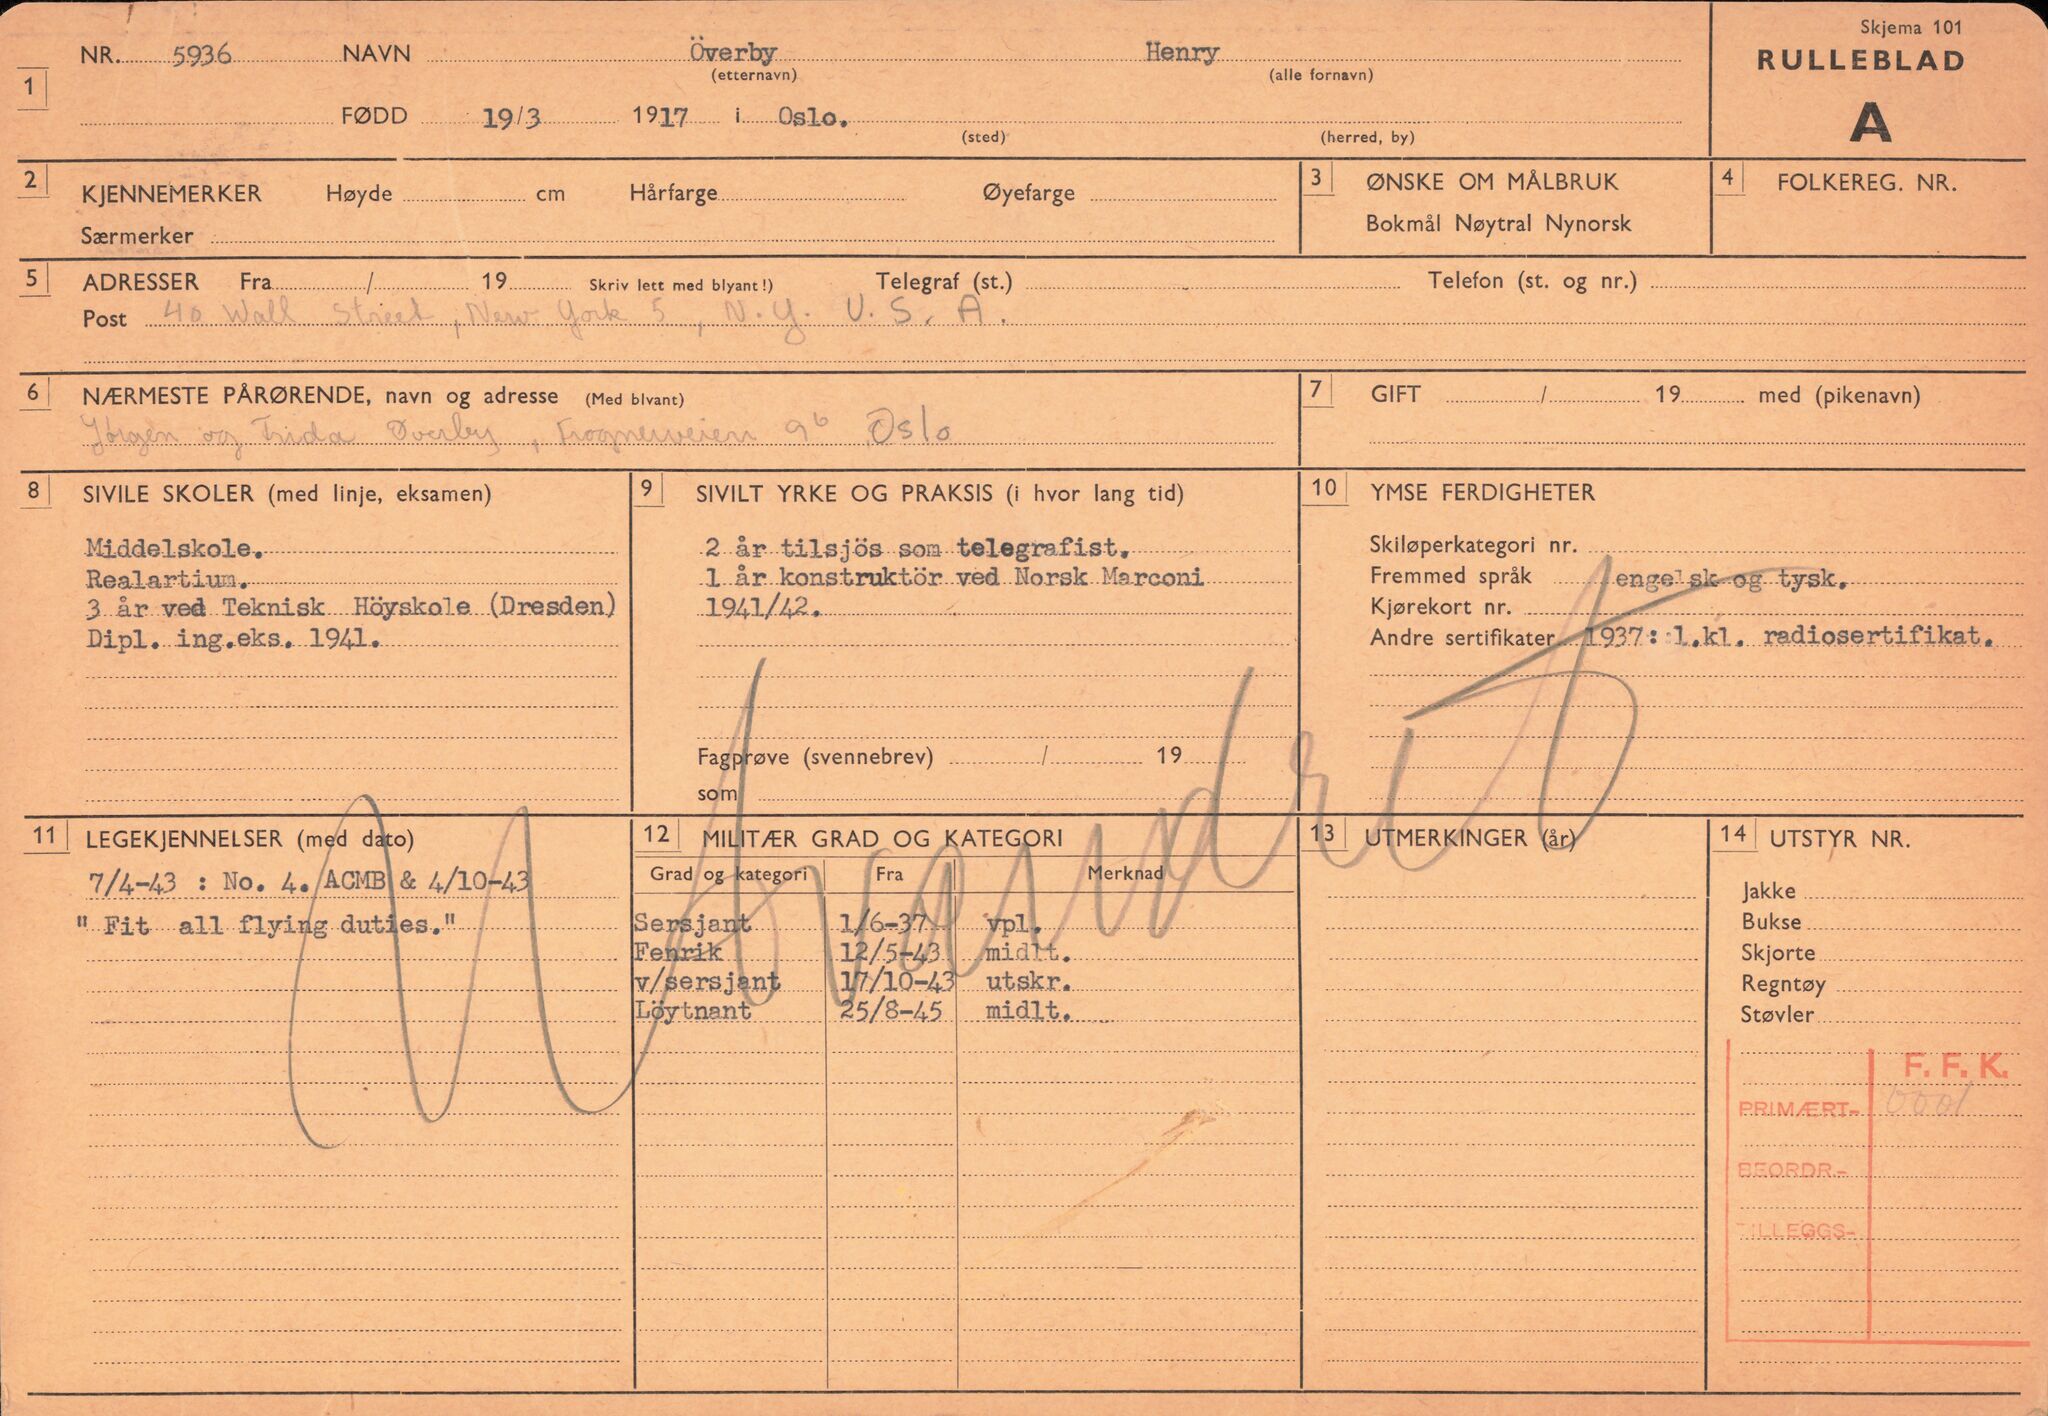 Skjema 101
RULLEBLAD
A
1 NR. 5936 NAVN Överby Henry
(etternavn) (alle fornavn)
FØDD 19/3 1917 i Oslo.
(sted) (herred, by)
2 KJENNEMERKER Høyde cm Hårfarge Øyefarge
Særmerker
3 ØNSKE OM MÅLBRUK
Bokmål Nøytral Nynorsk
4 FOLKEREG. NR.
5 ADRESSER Fra / 19 Skriv lett med blyant!) Telegraf (st.) Telefon (st. og nr.)
Post 40 Wall Street, New York 5, N.Y. U.S.A.
6 NÆRMESTE PÅRØRENDE, navn og adresse (Med blvant)
Jørgen og Frida Øverby, Frognerveien 9b Oslo
7 GIFT / 19 med (pikenavn)
8 SIVILE SKOLER (med linje, eksamen)
Middelskole.
Realartium.
3 år ved Teknisk Höyskole (Dresden)
Dipl. ing.eks. 1941.
9 SIVILT YRKE OG PRAKSIS (i hvor lang tid)
2 år tilsjös som telegrafist.
1 år konstruktör ved Norsk Marconi
1941/42.
Fagprøve (svennebrev) / 19
som
10 YMSE FERDIGHETER
Skiløperkategori nr.
Fremmed språk engelsk og tysk.
Kjørekort nr.
Andre sertifikater 1937: 1.kl. radiosertifikat.
Utvandret
11 LEGEKJENNELSER (med dato)
7/4-43 : No. 4. ACMB & 4/10-43
" Fit all flying duties."
12 MILITÆR GRAD OG KATEGORI
Grad og kategori Fra Merknad
Sersjant 1/6-37 vpl.
Fenrik 12/5-43 midlt.
v/sersjant 17/10-43 utskr.
Löytnant 25/8-45 midlt.
13 UTMERKINGER (år)
14 UTSTYR NR.
Jakke
Bukse
Skjorte
Regntøy
Støvler
F. F. K.
PRIMÆRT- 0001
BEORDR.-
TILLEGGS-